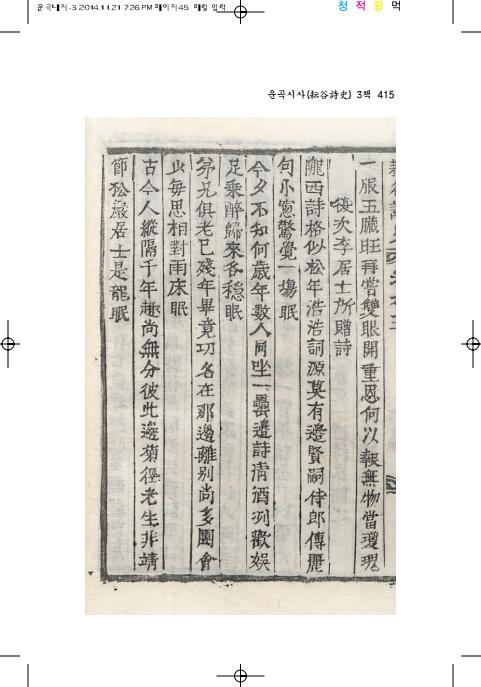 운곡시사-3 2014.11.21 7:26 PM 페이지45
청 적 황 먹
운곡시사(耘谷詩史) 3책 415
一服五臟旺再嘗雙眼開重恩何以報無物當瓊瑰
復次李居士所贈詩
隴西詩格似松年浩浩詞源莫有邊賢嗣侍郎傳麗
句小窓驚覺一場眠
今夕不知何歲年數人同坐一罍邊詩淸酒冽歡娛
足乘醉歸來各穩眠
弟兄俱老已殘年畢竟功名在那邊離別尙多團會
少每思相對雨床眠
古今人縱隔千年趣尙無分彼此邊菊徑老生非靖
節松巖居士是龍眠